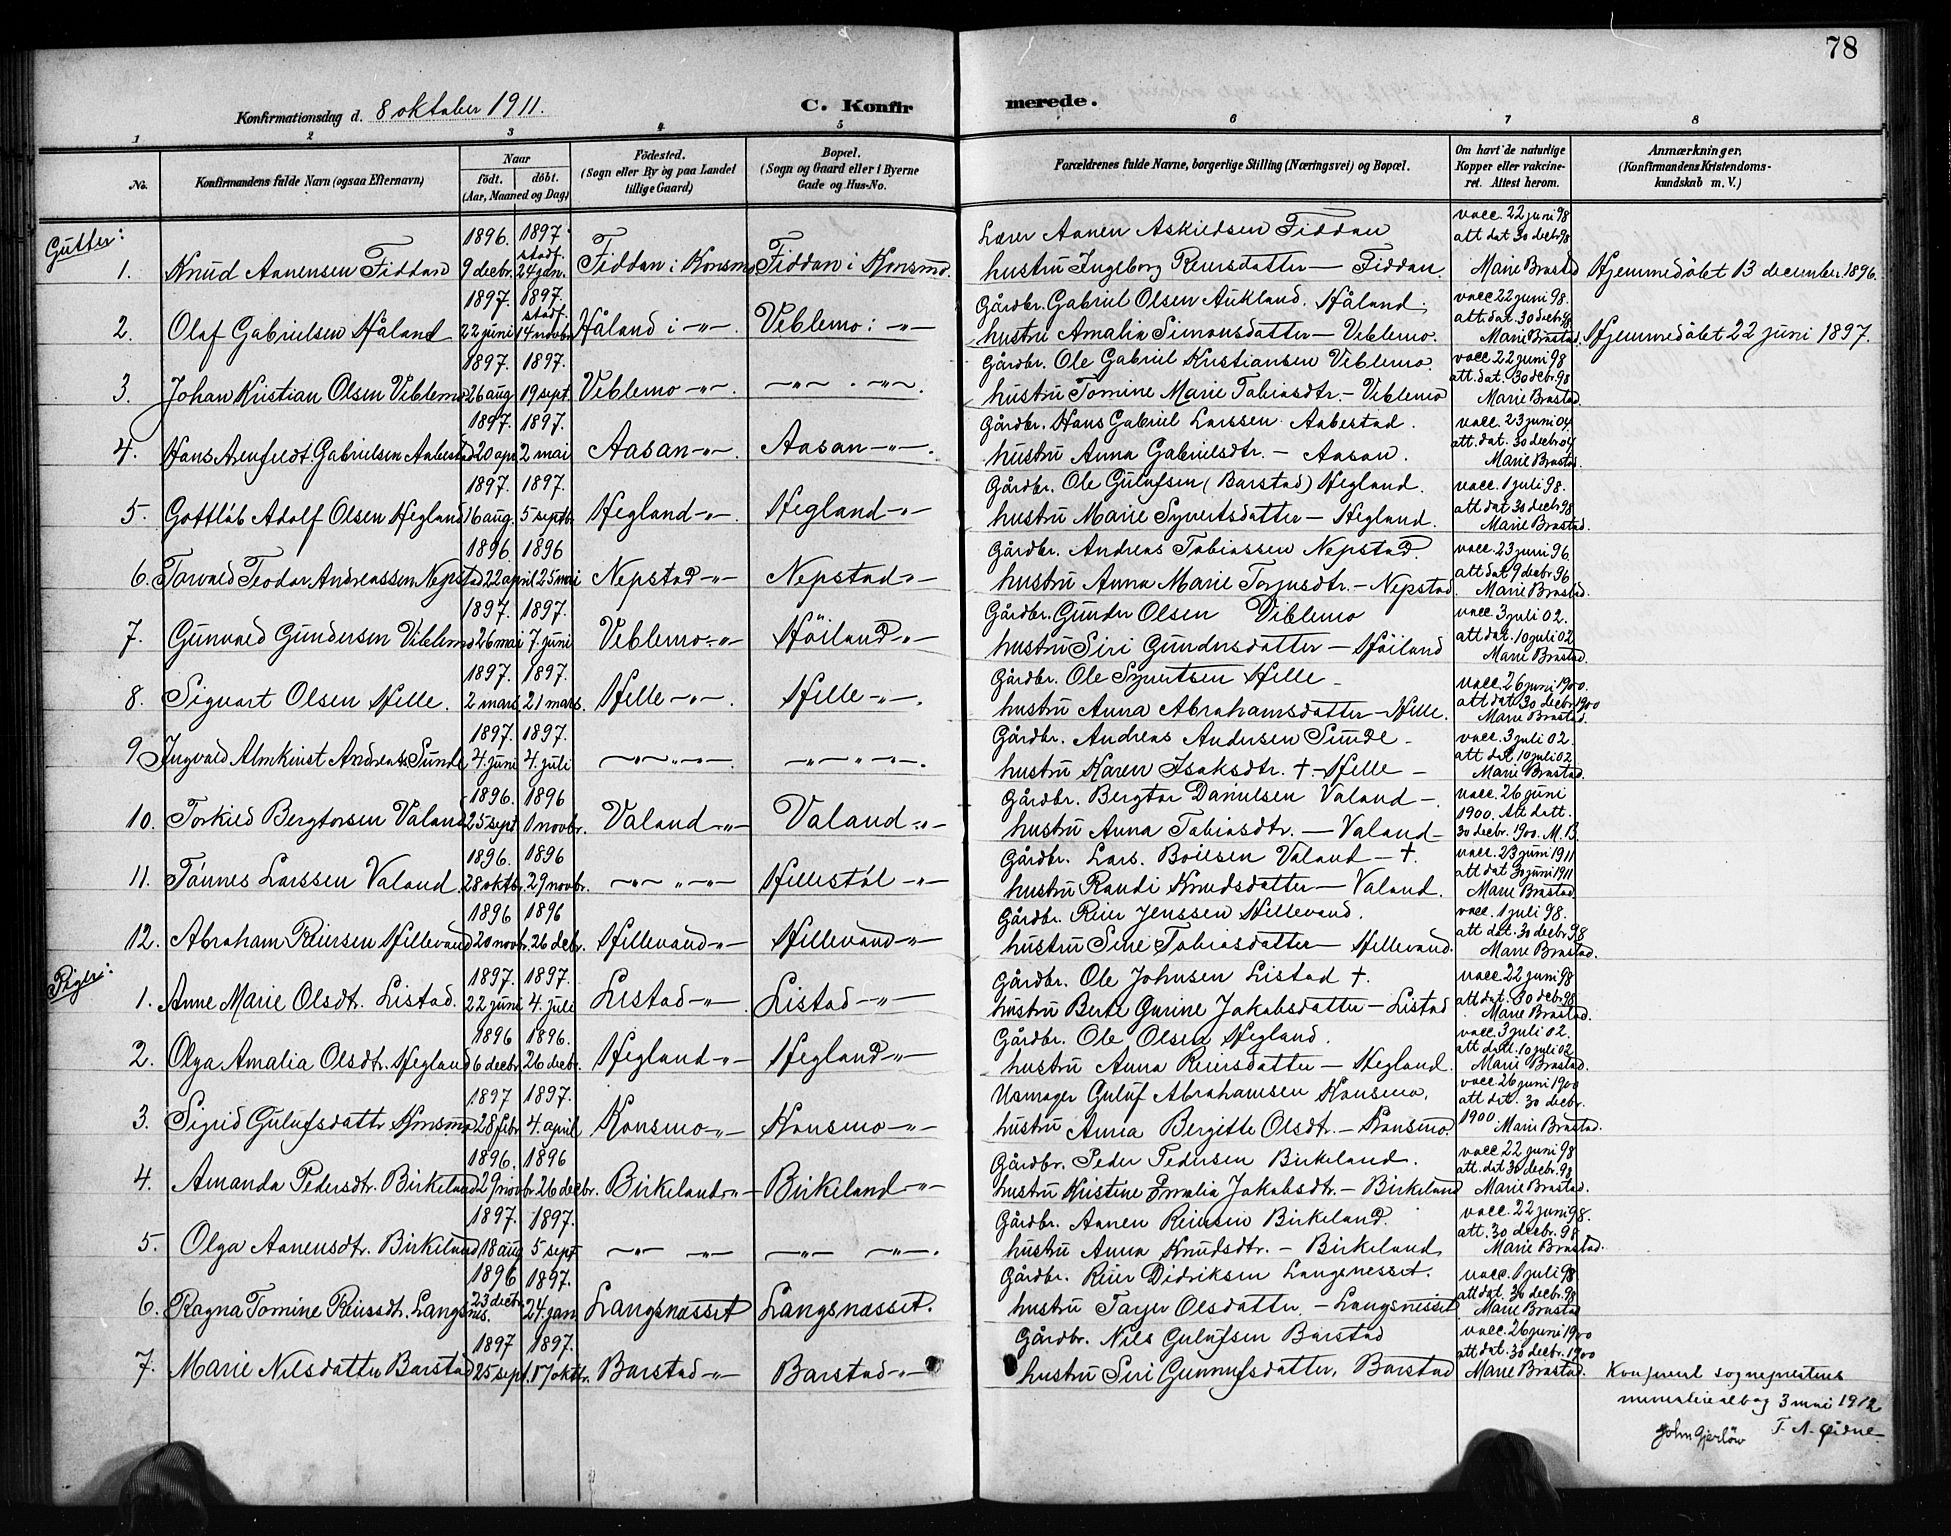 78
Konfirmationsdag d. 8 oktober 1911.
C. Konfirmerede.
1 2 3 4 5 6 7 8
No.
Konfirmandens fulde Navn (ogsaa Efternavn)
Naar
født. døbt.
(Aar, Maaned og Dag)
Födested.
(Sogn eller By og paa Landet
tillige Gaard)
Bopæl.
(Sogn og Gaard eller i Byerne
Gade og Hus-No.
Forældrenes fulde Navne, borgerlige Stilling (Næringsvei) og Bopæl.
Om havt de naturlige
Kopper eller vakcine-
ret. Attest herom.
Anmærkninger,
(Konfirmandens Kristendoms-
kundskab m. V.)
Gutter:
1896. 1897. stadf. Lærer Aanen Askildsen Fiddan vacc. 22 juni 98 att dat 30 decbr 98
1. Knud Aanensen Fiddan 9 decbr. 24 jan. Fiddan i Konsmo Fiddan i Konsmo. hustru Ingeborg Reiersdatter — Fiddan. Marie Brastad Hjemmedøbt 13 december 1896.
1897. 1897. stadf. Gårdbr. Gabriel Olsen Aukland. Håland. vacc 22 juni 98. att. dat. 30 decbr 98
2. Olaf Gabrielsen Håland 22 juni 14 novbr. Håland i -"- Veblemo i -"- hustru Amalia Simonsdatter — Veblemo. Marie Brastad. Hjemmedøbt 22 juni 1897.
1897. 1897. Gårdbr. Ole Gabriel Kristiansen Veblemo. vacc 22 juni 98 att. dat. 30 decbr. 98
3. Johan Kristian Olsen Veblemo 26 aug 19 sept. Veblemo -"- -"- . -"-. hustru Tomine Marie Tobiasdtr. — Veblemo Marie Brastad.
1897. 1897. Gårdbr. Hans Gabriel Larssen Aabestad. vacc. 23 juni 04. att. dat. 30 decbr 04
4. Hans Arenfeldt Gabrielsen Aabestad 20 apr 2 mai Aasan -"- Aasan -"- hustru Anna Gabrielsdtr. — Aasan. Marie Brastad.
1897. 1897. Gårdbr. Ole Gulufsen (Barstad) Hegland. vacc. 1 juli 98. att dat 30 decbr 98
5. Gottlob Adolf Olsen Hegland 16 aug. 5 septbr. Hegland -"- Hegland -"- hustru Marie Syvertsdatter — Hegland. Marie Brastad.
1896 1896 Gårdbr. Andreas Tobiassen Nepstad. vacc. 23 juni 96. att dat 9 decbr. 96
6. Torvald Teodor Andreassen Nepstad 22 april 25 mai Nepstad -"- Nepstad -"- hustru Anna Marie Torjusdtr. — Nepstad. Marie Brastad.
1897. 1897. Gårdbr. Gunder Olsen Viblemo vacc. 3 juli 02. att dat. 10 juli 02
7. Gunvald Gundersen Viblemo 26 mai 7. juni Veblemo -"- Höiland -"- hustru Siri Gundersdatter — Höiland Marie Brastad.
1897. 1897. Gårdbr. Ole Syvertsen Hille — vacc. 26 juni 1900. att dat 30 decbr 1900
8. Sigvart Olsen Hille. 2 mars. 21 mars. Hille -"- Hille -"- hustru Anna Abrahamsdatter — Hille. Marie Brastad.
1897. 1897. Gårdbr. Andreas Andersen Sunde — vacc. 3 juli 02. att dat 10 juli 02
9 Ingvald Almkvist Andreass. Sunde 4. juni 4. juli -"- " -"- -"- " -"-. hustru Karen Isaksdtr. † — Hille — Marie Brastad.
1896. 1896 Gårdbr. Bergtor Danielsen Valand —. vacc. 26 juni 1900. Att datt.
10. Torkild Bergtorsen Valand 25 sept. 1 novbr. Valand -"- Valand -"- hustru Anna Tobiasdtr. — Valand — 30 decbr. 1900. M. B.
1896. 1896 Gårdbr. Lars. Boiesen Valand — †. vacc. 23 juni 1911 att dat 30 juni 1911
11. Tönnes Larssen Valand. 28 oktbr. 29 novbr. -"- " -"- Hillestøl -"- hustru Randi Knudsdatter — Valand. Marie Brastad.
1896 1896 Gårdbr. Reier Jenssen Hillevand. vacc. 1 juli 98. att dat. 30 decbr. 98
12. Abraham Reiersen Hillevand 20 novbr. 26 debr. Hillevand -"- Hillevand -"- hustru Sine Tobiasdatter — Hillevand. Marie Brastad.
Piger:
1897. 1897. Gårdbr. Ole Johnsen Listad †. vacc. 22 juni 98 att dat. 30 debr. 98
1. Anne Marie Olsdtr. Listad. 22 juni 4. juli Listad -"- Listad -"- hustru Berte Gurine Jakobsdatter — Listad Marie Brastad.
1896 1896. Gårdbr. Ole Olsen Hegland. vacc. 3 juli 02. att datt. 10 juli 02
2. Olga Amalia Olsdtr. Hegland 6 decbr. 26 decbr. Hegland -"- Hegland -"- hustru Anna Reiersdatter — Hegland. Marie Brastad.
1897 1897. Urmager Guluf Abrahamsen Konsmo. vacc 26 juni 1900 att dat. 30 decbr.
3. Sigrid Gulufsdattr Konsmo 28 febr 4. april Konsmo -"- Konsmo -"- hustru Anna Bergitte Olsdt. — Konsmo. 1900 Marie Brastad.
1896. 1896 Gårdbr. Peder Pedersen Birkeland. vacc 22 juni 98 att. dat 30 decbr. 98
4. Amanda Pedersdt. Birkeland 29 novbr. 26 decbr. Birkeland -"- Birkeland -"- hustru Kristine Emalia Jakobsdtr. — Birkeland Marie Brastad.
1897. 1897. Gårdbr. Aanen Reiersen Birkeland. vacc. 22 juni 98. att. 30 decbr. 98
5. Olga Aanensdtr. Birkeland 18 aug 5 sept. -"- -"- -"- -"-. hustru Anna Knudsdtr. — Birkeland Marie Brastad.
1896 1897. Gårdbr. Reier Didriksen Langsnesset. vacc. 1 juli 98 att dat. 30 decbr. 98
6. Ragna Tomine Reiersdt. Langsnes. 23 decbr. 24. jan. Langsnæsset Langsnæsset. hustru Tarjer Olsdatter — Langsnesset Marie Brastad
1897 1897. Gårdbr. Nils Gulufsen Barstad vacc. 26 juni 1900 att dat. 30 decbr. 1900
7. Marie Nilsdatter Barstad 25 sept. 17 oktbr. Barstad -"- Barstad -"- hustru Siri Gunnufsdatter, Barstad Marie Brastad.
Konferert sogneprestens
ministerialbog 3 mai 1912
John Gjerløw T. A. Øidne